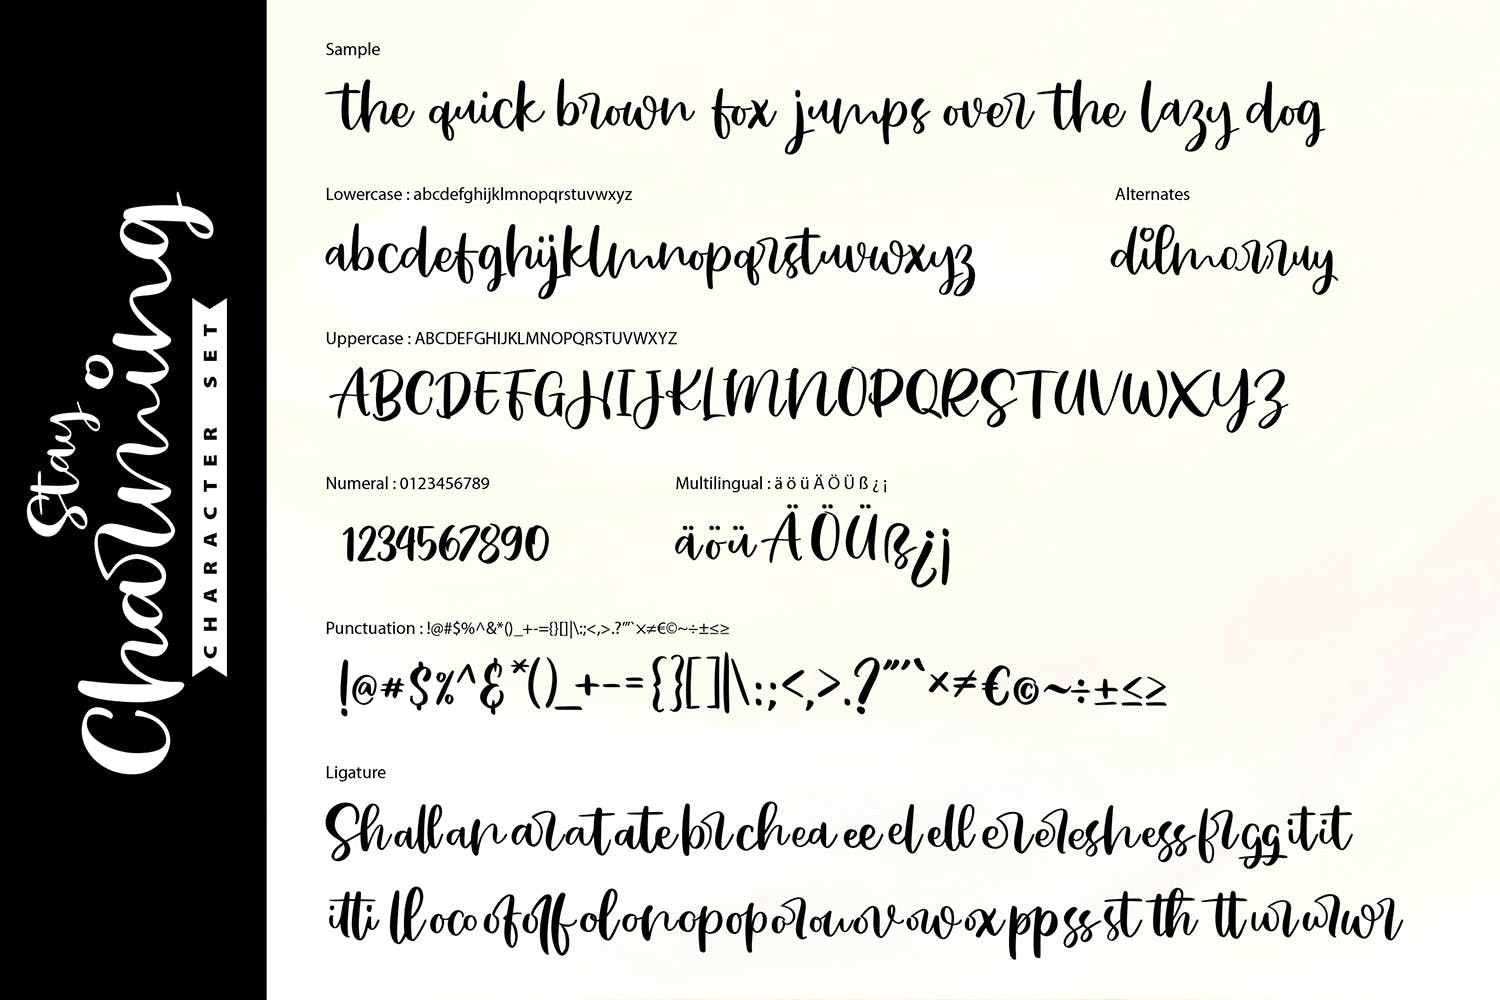 Stay
Charming
CHARACTER SET
Sample
the quick brown fox jumps over the lazy dog
Lowercase : abcdefghijklmnopqrstuvwxyz
abcdefghijklmnopqrstuvwxyz
Alternates
dilmorruy
Uppercase : ABCDEFGHIJKLMNOPQRSTUVWXYZ
ABCDEFGHIJKLMNOPQRSTUVWXYZ
Numeral : 0123456789
1234567890
Multilingual : ä ö ü Ä Ö Ü ß ¿ ¡
äöüÄÖÜß¿¡
Punctuation : !@#$%^&*()_+-={}[]|\:;<,>.?”’`×≠€©~÷±≤≥
!@#$%^&*()_+-={}[]|\:;<,>.?”’`×≠€©~÷±≤≥
Ligature
Sh all an ar at ate br ch ea ee el ell er er es h ess fr gg it it
itti ll oc o of off ol on op op or ou ov ow ox pp ss st th tt ur wr wr